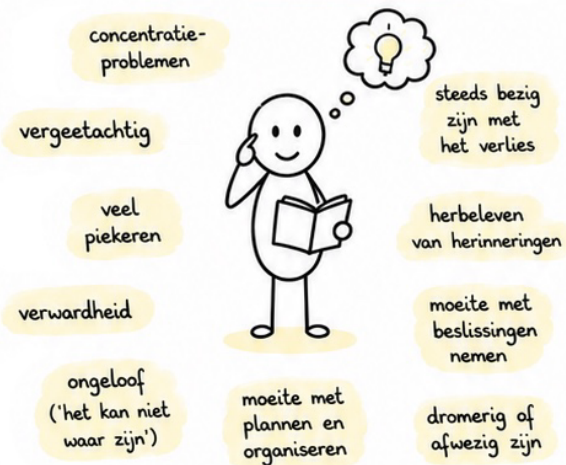 concentratie-
problemen
vergeetachtig
veel
piekeren
verwardheid
ongeloof
('het kan niet
waar zijn')
moeite met
plannen en
organiseren
steeds bezig
zijn met
het verlies
herbeleven
van herinneringen
moeite met
beslissingen
nemen
dromerig of
afwezig zijn